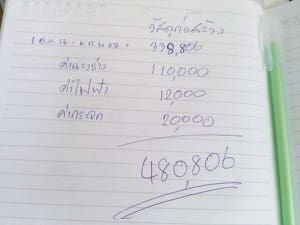 วัสดุก่อสร้าง
338,806
ค่าแรงช่าง 110,000
ค่าไฟฟ้า 12,000
ค่ากระจก 20,000
480,806